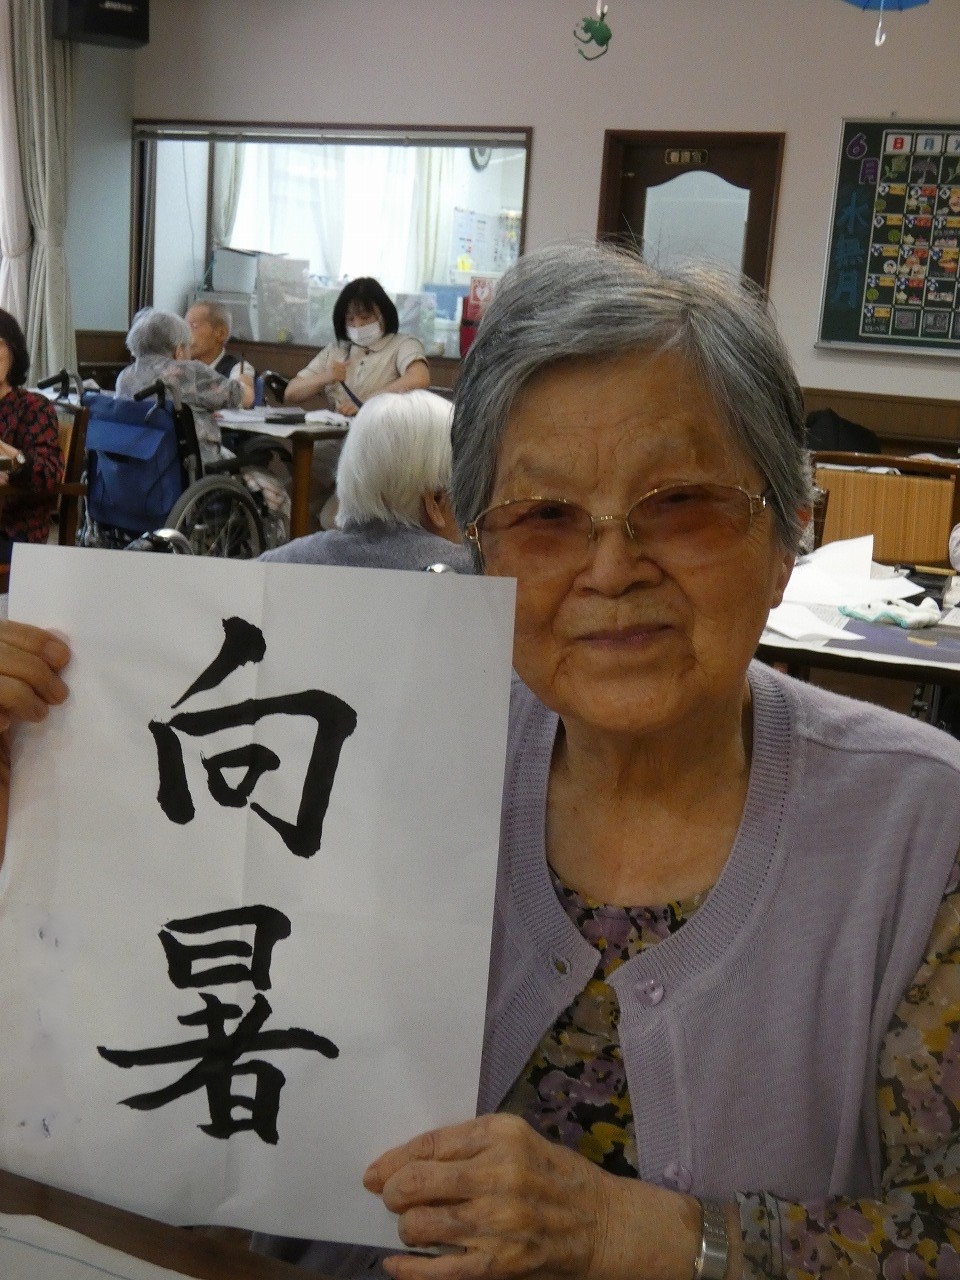 向
暑
6月
水無月
日 月